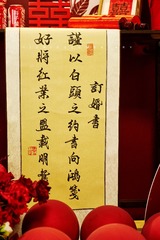 訂婚書
謹以白頭之約書向鴻箋
好將紅葉之盟載明鴛